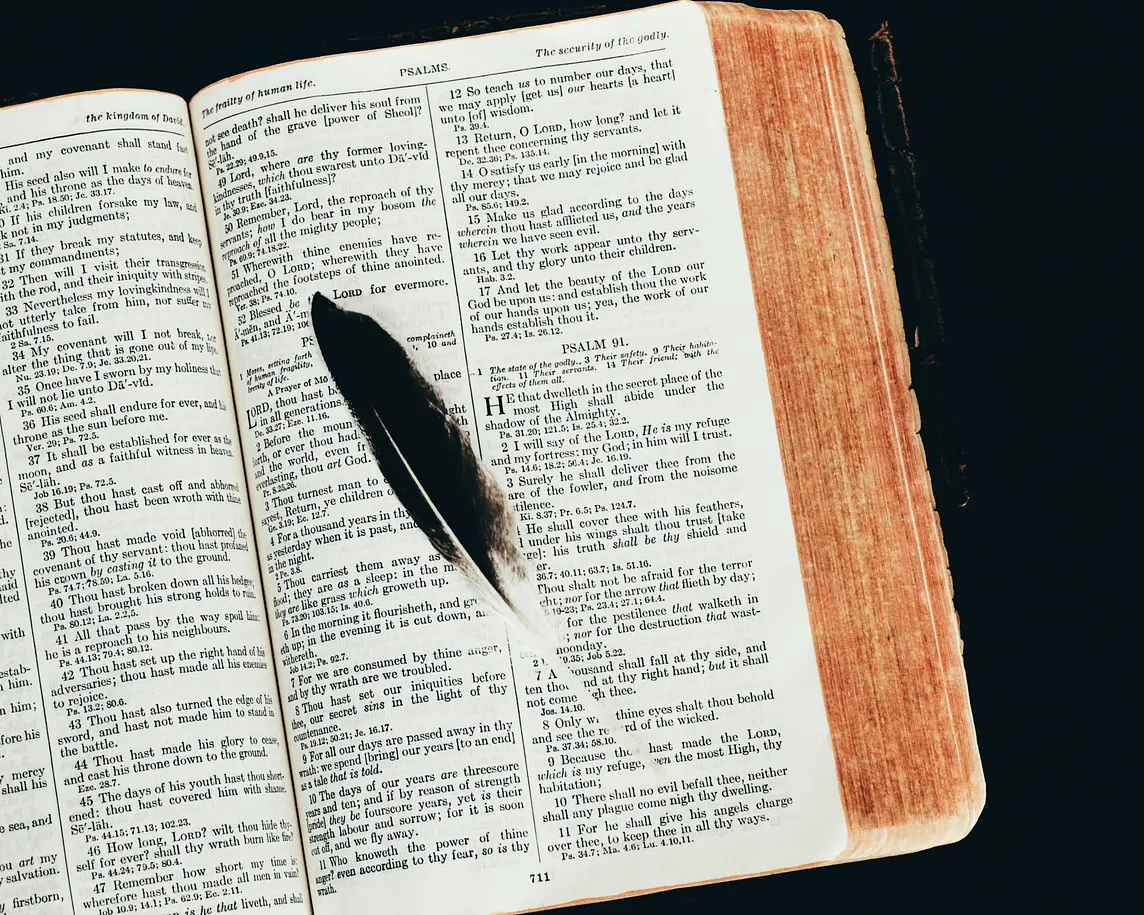 the kingdom of David.
and my covenant shall stand fast
him.
His seed also will I make to endure for
and his throne as the days of heaven.
Ki. 2.4; Ps. 18.50; Je. 33.17.
If his children forsake my law, and
k not in my judgments;
Sa. 7.14.
31 If they break my statutes, and keep
t my commandments;
32 Then will I visit their transgression
ith the rod, and their iniquity with stripes.
33 Nevertheless my lovingkindness will I
ot utterly take from him, nor suffer my
aithfulness to fail.
2 Sa. 7.15.
34 My covenant will I not break, nor
alter the thing that is gone out of my lips.
Nu. 23.19; De. 7.9; Je. 33.20,21.
35 Once have I sworn by my holiness that
I will not lie unto Dā'-vid.
Ps. 60.6; Am. 4.2.
36 His seed shall endure for ever, and his
throne as the sun before me.
Ver. 29; Ps. 72.5.
37 It shall be established for ever as the
moon, and as a faithful witness in heaven.
Sē'-läh.
Job 16.19; Ps. 72.5.
38 But thou hast cast off and abhorred
[rejected], thou hast been wroth with thine
anointed.
Ps. 20.6; 44.9.
39 Thou hast made void [abhorred] the
covenant of thy servant: thou hast profaned
his crown by casting it to the ground.
Ps. 74.7; 75.59; La. 5.16.
40 Thou hast broken down all his hedges;
thou hast brought his strong holds to ruin.
Ps. 80.12; La. 2.2,5.
41 All that pass by the way spoil him:
he is a reproach to his neighbours.
Ps. 44.13; 79.4; 80.12.
42 Thou hast set up the right hand of his
adversaries; thou hast made all his enemies
to rejoice.
Ps. 13.2; 80.6.
43 Thou hast also turned the edge of his
sword, and hast not made him to stand in
the battle.
44 Thou hast made his glory to cease,
and cast his throne down to the ground.
Eze. 28.7.
45 The days of his youth hast thou short-
ened: thou hast covered him with shame.
Sē'-läh.
Ps. 44.15; 71.13; 102.23.
46 How long, LORD? wilt thou hide thy-
self for ever? shall thy wrath burn like fire?
Ps. 44.24; 79.5; 80.4.
47 Remember how short my time is:
wherefore hast thou made all men in vain?
Job 10.9; 14.1; Ps. 62.9; Ec. 2.11.
is he that liveth, and shall
The frailty of human life.
PSALMS.
The security of the godly.
not see death? shall he deliver his soul from
the hand of the grave [power of Sheol]?
Sē'-läh.
Ps. 22.29; 49.9,15.
49 Lord, where are thy former loving-
kindnesses, which thou swarest unto Dā'-vid
in thy truth [faithfulness]?
Je. 30.9; Eze. 34.23.
50 Remember, Lord, the reproach of thy
servants; how I do bear in my bosom the
reproach of all the mighty people;
Ps. 69.9; 74.18,22.
51 Wherewith thine enemies have re-
proached, O LORD; wherewith they have
reproached the footsteps of thine anointed.
Ver. 38; Ps. 74.10.
52 Blessed be LORD for evermore.
Ā'-mĕn, and Ā'-m
Ps. 41.13; 72.19; 106
1 Moses, setting forth complaineth
of human fragility, 10 and
brevity of life.
A Prayer of Mo
LORD, thou hast b place
in all generations.
De. 33.27; Eze. 11.16.
2 Before the moun ght
forth, or ever thou had
and the world, even fr
everlasting, thou art God.
Pr. 8.25,26.
3 Thou turnest man to
sayest, Return, ye children o
Ge. 3.19; Ec. 12.7.
4 For a thousand years in thy
as yesterday when it is past, and
in the night.
2 Pe. 3.8.
5 Thou carriest them away as
flood; they are as a sleep: in the m
they are like grass which groweth up.
Ps. 73.20; 103.15; Is. 40.6.
6 In the morning it flourisheth, and gr
eth up; in the evening it is cut down, a
withereth.
Job 14.2; Ps. 92.7.
7 For we are consumed by thine anger,
and by thy wrath are we troubled.
8 Thou hast set our iniquities before
thee, our secret sins in the light of thy
countenance.
Ps. 19.12; 50.21; Je. 16.17.
9 For all our days are passed away in thy
wrath: we spend [bring] our years [to an end]
as a tale that is told.
10 The days of our years are threescore
years and ten; and if by reason of strength
[pride] they be fourscore years, yet is their
strength labour and sorrow; for it is soon
cut off, and we fly away.
11 Who knoweth the power of thine
anger? even according to thy fear, so is thy
wrath.
12 So teach us to number our days, that
we may apply [get us] our hearts [a heart]
unto [of] wisdom.
Ps. 39.4.
13 Return, O LORD, how long? and let it
repent thee concerning thy servants.
De. 32.36; Ps. 135.14.
14 O satisfy us early [in the morning] with
thy mercy; that we may rejoice and be glad
all our days.
Ps. 85.6; 149.2.
15 Make us glad according to the days
wherein thou hast afflicted us, and the years
wherein we have seen evil.
16 Let thy work appear unto thy serv-
ants, and thy glory unto their children.
Hab. 3.2.
17 And let the beauty of the LORD our
God be upon us: and establish thou the work
of our hands upon us; yea, the work of our
hands establish thou it.
Ps. 27.4; Is. 26.12.
PSALM 91.
1 The state of the godly. 3 Their safety. 9 Their habita-
tion. 11 Their servants. 14 Their friend; with the
effects of them all.
HE that dwelleth in the secret place of the
most High shall abide under the
shadow of the Almighty.
Ps. 31.20; 121.5; Is. 25.4; 32.2.
2 I will say of the LORD, He is my refuge
and my fortress: my God; in him will I trust.
Ps. 14.6; 18.2; 56.4; Je. 16.19.
3 Surely he shall deliver thee from the
are of the fowler, and from the noisome
tilence.
Ki. 8.37; Pr. 6.5; Ps. 124.7.
He shall cover thee with his feathers,
under his wings shalt thou trust [take
ge]: his truth shall be thy shield and
er.
36.7; 40.11; 63.7; Is. 51.16.
Thou shalt not be afraid for the terror
ht; nor for the arrow that flieth by day;
19-23; Ps. 23.4; 27.1; 64.4.
for the pestilence that walketh in
s; nor for the destruction that wast-
noonday.
9.35; Job 5.22.
7 A thousand shall fall at thy side, and
ten thou nd at thy right hand; but it shall
not come gh thee.
Jos. 14.10.
8 Only wi thine eyes shalt thou behold
and see the re rd of the wicked.
Ps. 37.34; 58.10.
9 Because tho hast made the LORD,
which is my refuge, even the most High, thy
habitation;
10 There shall no evil befall thee, neither
shall any plague come nigh thy dwelling.
11 For he shall give his angels charge
over thee, to keep thee in all thy ways.
Ps. 34.7; Ma. 4.6; Lu. 4.10,11.
711